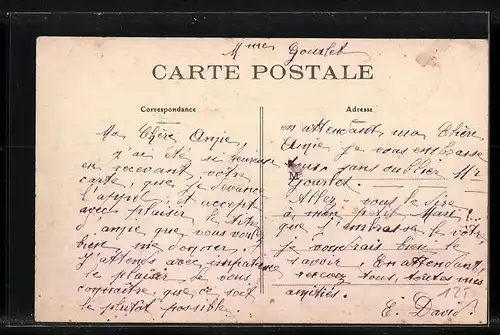 Mme Gourlet
CARTE POSTALE
Correspondance
Ma Chère Amie,
j'ai été si heureuse
en recevant votre
carte, que je devance
et accepte
avec plaisir le titre
d'amie que vous voulez
bien me donner.
J'attends avec impatience
le plaisir de vous
connaître, que ce soit
le plutôt possible.
Adresse
en attendant ma Chère
Amie je vous embrasse
tous, sans oublier Mr
M
Gourlet.
Allez vous le dire
à mon petit Mari?...
que j'embrasse le vôtre,
je voudrais bien le
savoir. En attendant,
recevez tous, toutes mes
amitiés.
E. David.
125